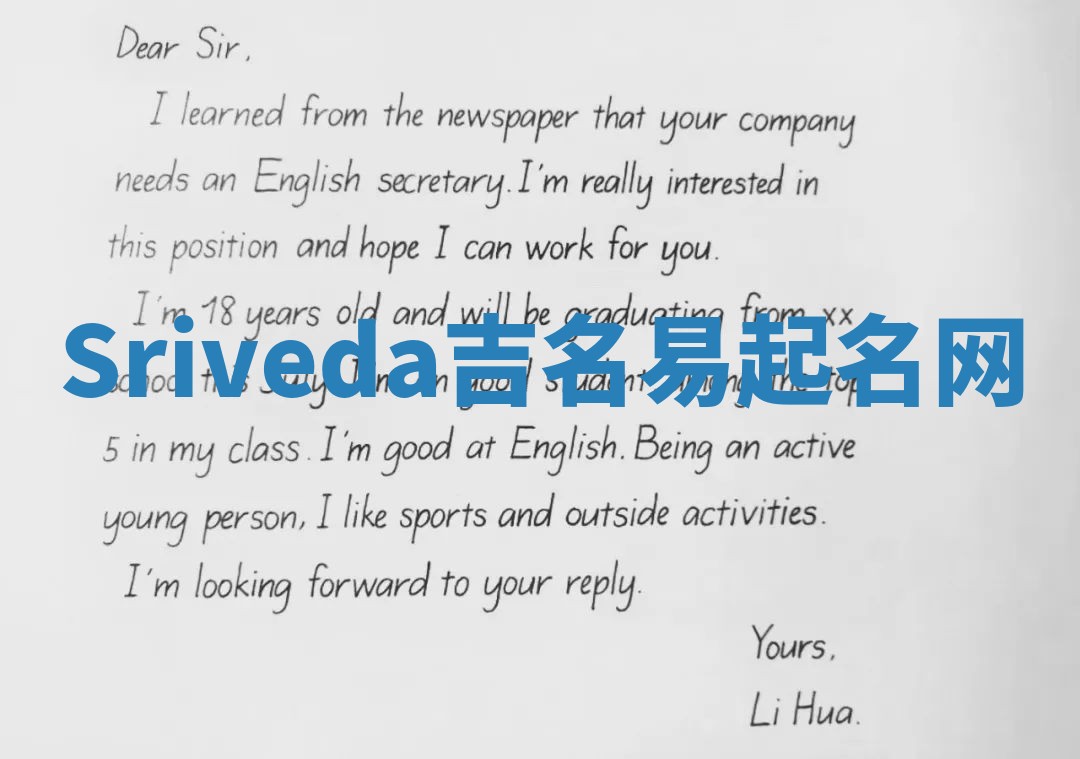 Dear Sir,
I learned from the newspaper that your company
needs an English secretary. I'm really interested in
this position and hope I can work for you.
I'm 18 years old and will be graduating from xx
Sriveda吉名易起名网
school this July. I'm good student among the top
5 in my class. I'm good at English. Being an active
young person, I like sports and outside activities.
I'm looking forward to your reply.
Yours,
Li Hua.